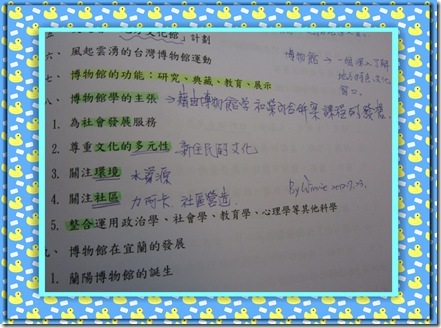 文化館」計劃
六、風起雲湧的台灣博物館運動
博物館→一個深入了解
地方特色文化
窗口。
七、博物館的功能：研究、典藏、教育、展示
八、博物館學的主張→藉由博物館學和學術合併案課程的發展。
1. 為社會發展服務
2. 尊重文化的多元性 新住民的文化
3. 關注環境 水資源
4. 關注社區 社區營造
5. 整合運用政治學、社會學、教育學、心理學等其他科學
九、博物館在宜蘭的發展
1. 蘭陽博物館的誕生